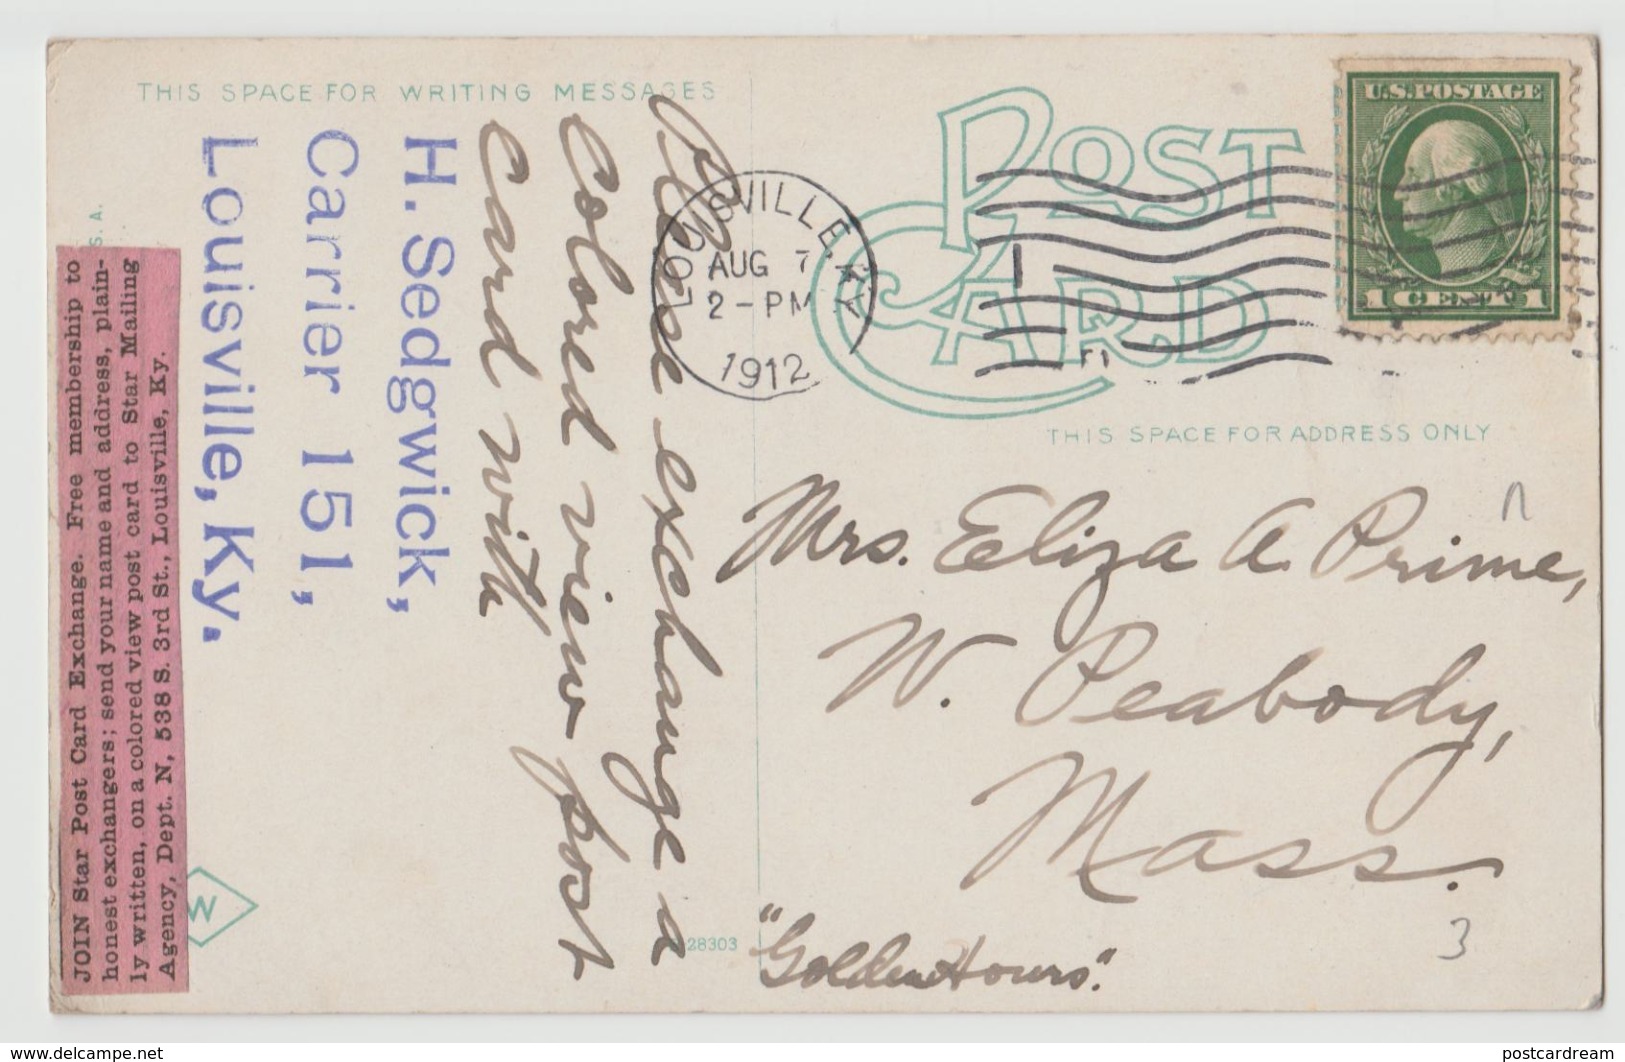 THIS SPACE FOR WRITING MESSAGES
Please exchange a
Colored view post
Card with
H. Sedgwick,
Carrier 151,
Louisville, Ky.
JOIN Star Post Card Exchange. Free membership to
honest exchangers; send your name and address, plain-
ly written, on a colored view post card to Star Mailing
Agency, Dept. N, 538 S. 3rd St., Louisville, Ky.
S. A.
W
28303
POST CARD
LOUISVILLE, KY
AUG 7
2-PM
1912
1
U.S. POSTAGE
1 CENT 1
THIS SPACE FOR ADDRESS ONLY
Mrs. Eliza A. Prime,
W. Peabody,
Mass.
"Golden Hours".
n
3
www.delcampe.net
postcardream